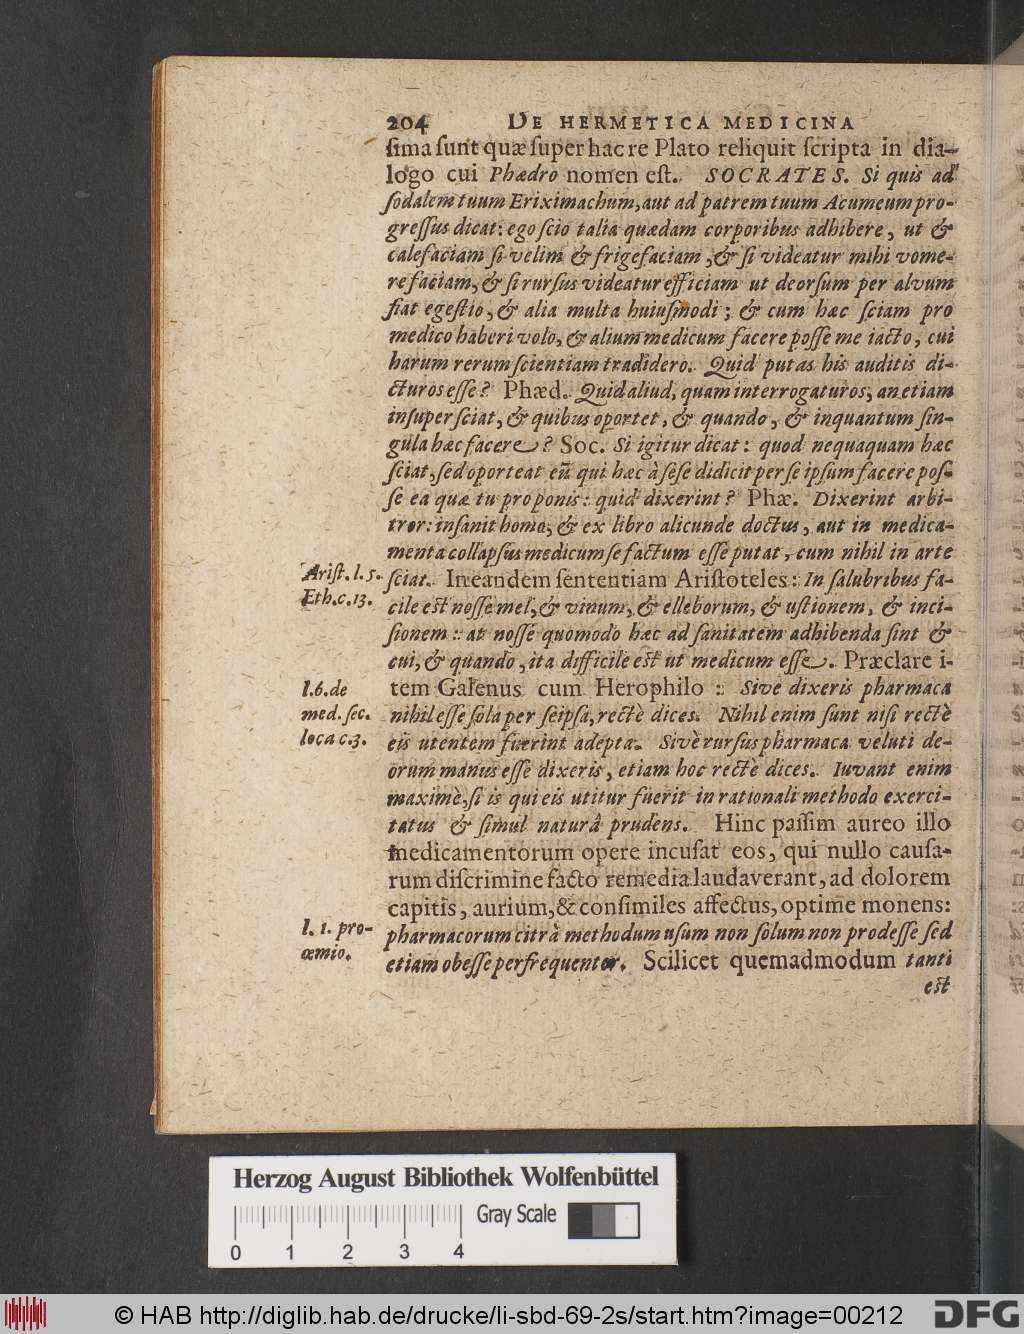 204 DE HERMETICA MEDICINA
ſima ſunt quæ ſuper hac re Plato reliquit ſcripta in dia-
logo cui Phædro nomen eſt. SOCRATES. Si quis ad
ſodalem tuum Eriximachum, aut ad patrem tuum Acumeum pro-
greſſus dicat: ego ſcio talia quædam corporibus adhibere, ut &
calefaciam ſi velim & frigefaciam, & ſi videatur mihi vome-
re faciam, & ſi rurſus videatur efficiam ut deorſum per alvum
fiat egeſtio, & alia multa huiuſmodi; & cum hæc ſciam pro
medico haberi volo, & alium medicum facere poſſe me iacto, cui
harum rerum ſcientiam tradidero. Quid putas his auditis di-
cturos eſſe? Phæd. Quid aliud, quam interrogaturos, an etiam
inſuper ſciat, & quibus oportet, & quando, & inquantum ſin-
gula hæc facere? Soc. Si igitur dicat: quod nequaquam hæc
ſciat, ſed oporteat eũ qui hæc à ſeſe didicit per ſe ipſum facere poſ-
ſe ea quæ tu proponis: quid dixerint? Phæ. Dixerint arbi-
tror: inſanit homo, & ex libro alicunde doctus, aut in medica-
menta collapſus medicum ſe factum eſſe putat, cum nihil in arte
Ariſt. l. 5. ſciat. In eandem ſententiam Ariſtoteles: In ſalubribus fa-
Eth. c. 13. cile eſt noſſe mel, & vinum, & elleborum, & uſtionem, & inci-
ſionem: at noſſe quomodo hæc ad ſanitatem adhibenda ſint &
cui, & quando, ita difficile eſt ut medicum eſſe. Præclare i-
l. 6. de tem Galenus cum Herophilo: Sive dixeris pharmaca
med. ſec. nihil eſſe ſola per ſeipſa, rectè dices. Nihil enim ſunt niſi rectè
loca c. 3. eis utentem fuerint adepta. Sivè rurſus pharmaca veluti de-
orum manus eſſe dixeris, etiam hoc rectè dices. Iuvant enim
maximè, ſi is qui eis utitur fuerit in rationali methodo exerci-
tatus & ſimul naturâ prudens. Hinc paſſim aureo illo
medicamentorum opere incuſat eos, qui nullo cauſa-
rum diſcrimine facto remedia laudaverant, ad dolorem
capitis, aurium, & conſimiles affectus, optime monens:
l. 1. pro- pharmacorum citrà methodum uſum non ſolum non prodeſſe ſed
œmio. etiam obeſſe perfrequenter. Scilicet quemadmodum tanti
eſt
Herzog August Bibliothek Wolfenbüttel
Gray Scale
0 1 2 3 4
© HAB http://diglib.hab.de/drucke/li-sbd-69-2s/start.htm?image=00212 DFG